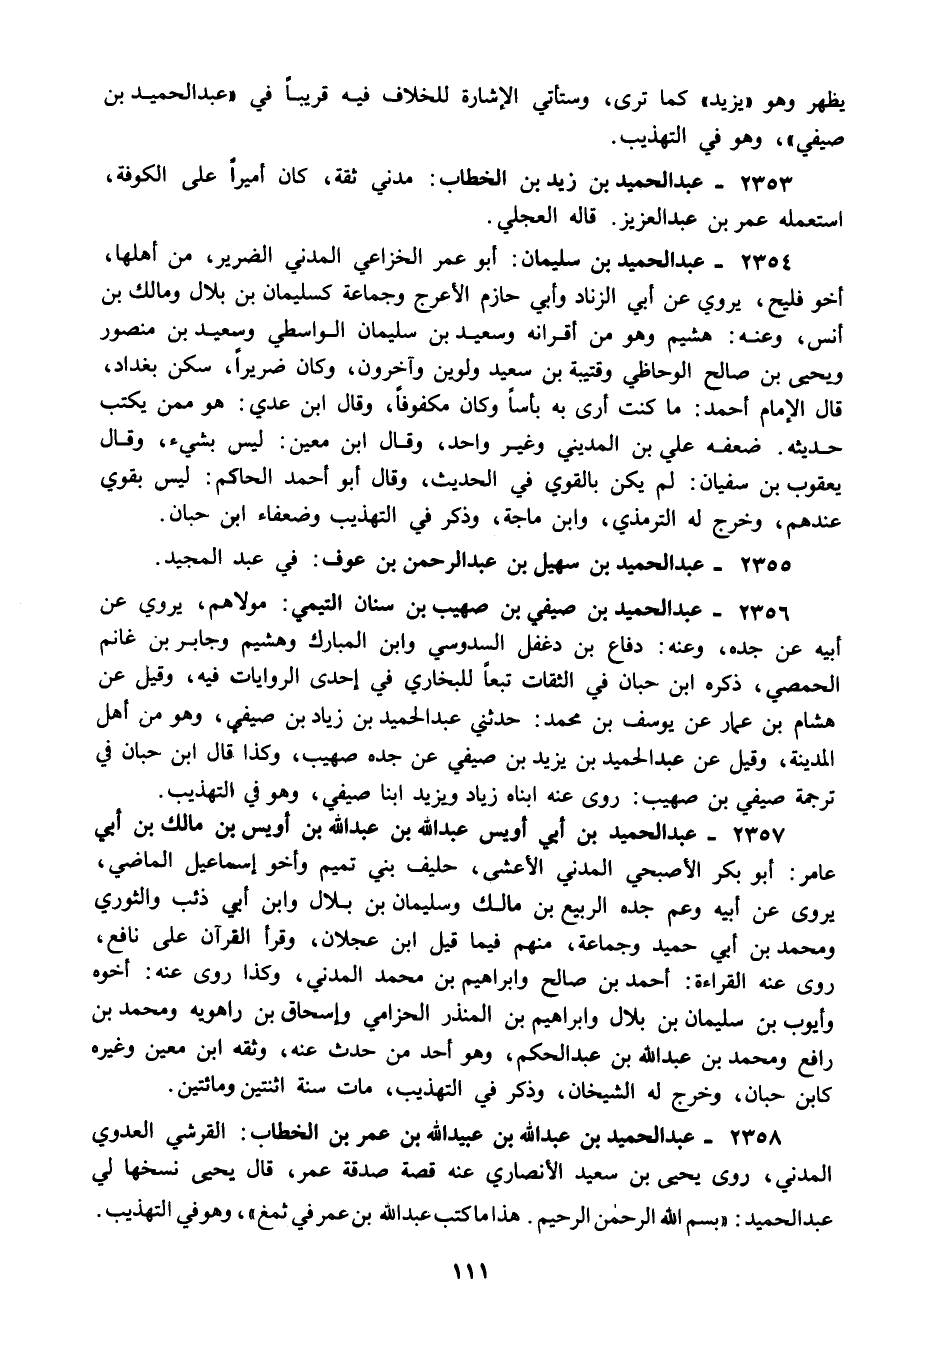 يظهر وهو «يزيد» كما ترى، وستأتي الإشارة للخلاف فيه قريباً في «عبدالحميد بن
صيفي»، وهو في التهذيب.
٢٣٥٣ ـ عبدالحميد بن زيد بن الخطاب: مدني ثقة، كان أميراً على الكوفة،
استعمله عمر بن عبدالعزيز. قاله العجلي.
٢٣٥٤ ـ عبدالحميد بن سليمان: أبو عمر الخزاعي المدني الضرير، من أهلها،
أخو فليح، يروي عن أبي الزناد وأبي حازم الأعرج وجماعة كسليمان بن بلال ومالك بن
أنس، وعنه: هشيم وهو من أقرانه وسعيد بن سليمان الواسطي وسعيد بن منصور
ويحيى بن صالح الوحاظي وقتيبة بن سعيد ولوين وآخرون، وكان ضريراً، سكن بغداد،
قال الإمام أحمد: ما كنت أرى به بأساً وكان مكفوفاً، وقال ابن عدي: هو ممن يكتب
حديثه. ضعفه علي بن المديني وغير واحد، وقال ابن معين: ليس بشيء، وقال
يعقوب بن سفيان: لم يكن بالقوي في الحديث، وقال أبو أحمد الحاكم: ليس بقوي
عندهم، وخرج له الترمذي، وابن ماجة، وذكر في التهذيب وضعفاء ابن حبان.
٢٣٥٥ ـ عبدالحميد بن سهيل بن عبدالرحمن بن عوف: في عبد المجيد.
٢٣٥٦ ـ عبدالحميد بن صيفي بن صهيب بن سنان التيمي: مولاهم، يروي عن
أبيه عن جده، وعنه: دفاع بن دغفل السدوسي وابن المبارك وهشيم وجابر بن غانم
الحمصي، ذكره ابن حبان في الثقات تبعاً للبخاري في إحدى الروايات فيه، وقيل عن
هشام بن عمار عن يوسف بن محمد: حدثني عبدالحميد بن زياد بن صيفي، وهو من أهل
المدينة، وقيل عن عبدالحميد بن يزيد بن صيفي عن جده صهيب، وكذا قال ابن حبان في
ترجمة صيفي بن صهيب: روى عنه ابناه زياد ويزيد ابنا صيفي، وهو في التهذيب.
٢٣٥٧ ـ عبدالحميد بن أبي أويس عبدالله بن عبدالله بن أويس بن مالك بن أبي
عامر: أبو بكر الأصبحي المدني الأعشى، حليف بني تميم وأخو إسماعيل الماضي،
يروى عن أبيه وعم جده الربيع بن مالك وسليمان بن بلال وابن أبي ذئب والثوري
ومحمد بن أبي حميد وجماعة، منهم فيما قيل ابن عجلان، وقرأ القرآن على نافع،
روى عنه القراءة: أحمد بن صالح وابراهيم بن محمد المدني، وكذا روى عنه: أخوه
وأيوب بن سليمان بن بلال وابراهيم بن المنذر الحزامي وإسحاق بن راهويه ومحمد بن
رافع ومحمد بن عبدالله بن عبدالحكم، وهو أحد من حدث عنه، وثقه ابن معين وغيره
كابن حبان، وخرج له الشيخان، وذكر في التهذيب، مات سنة اثنتين ومائتين.
٢٣٥٨ ـ عبدالحميد بن عبدالله بن عبيدالله بن عمر بن الخطاب: القرشي العدوي
المدني، روى يحيى بن سعيد الأنصاري عنه قصة صدقة عمر، قال يحيى نسخها لي
عبدالحميد: «بسم الله الرحمٰن الرحيم. هذا ما كتب عبدالله بن عمر في ثمغ»، وهو في التهذيب.
١١١